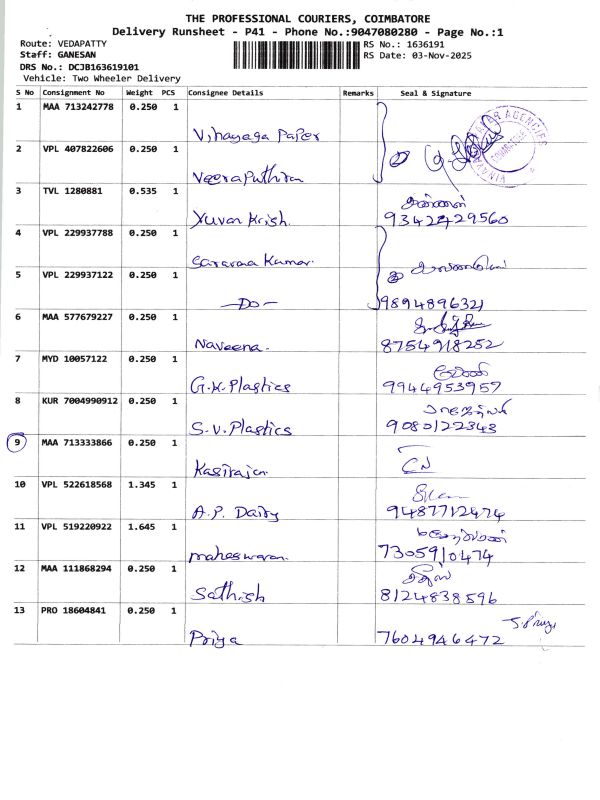 THE PROFESSIONAL COURIERS, COIMBATORE
Delivery Runsheet - P41 - Phone No.:9047080280 - Page No.:1
Route: VEDAPATTY RS No.: 1636191
Staff: GANESAN RS Date: 03-Nov-2025
DRS No.: DCJB163619101
Vehicle: Two Wheeler Delivery
S No Consignment No Weight PCS Consignee Details Remarks Seal & Signature
1 MAA 713242778 0.250 1
Vinayaga Paper
2 VPL 407822606 0.250 1
Veeraputhiran
3 TVL 1280881 0.535 1
Yuvan Krish. 9342429560
4 VPL 229937788 0.250 1
Saravana Kumar.
5 VPL 229937122 0.250 1
—Do— 9894896321
6 MAA 577679227 0.250 1
Naveena. 8754918252
7 MYD 10057122 0.250 1
G.K. Plastics 9944953957
8 KUR 7004990912 0.250 1
S.V. Plastics 9080122343
9 MAA 713333866 0.250 1
Kasirajan
10 VPL 522618568 1.345 1
A.P. Dairy 9487712474
11 VPL 519220922 1.645 1
maheswaran. 7305910474
12 MAA 111868294 0.250 1
Sathish 8124838596
13 PRO 18604841 0.250 1
Priya 7604946472